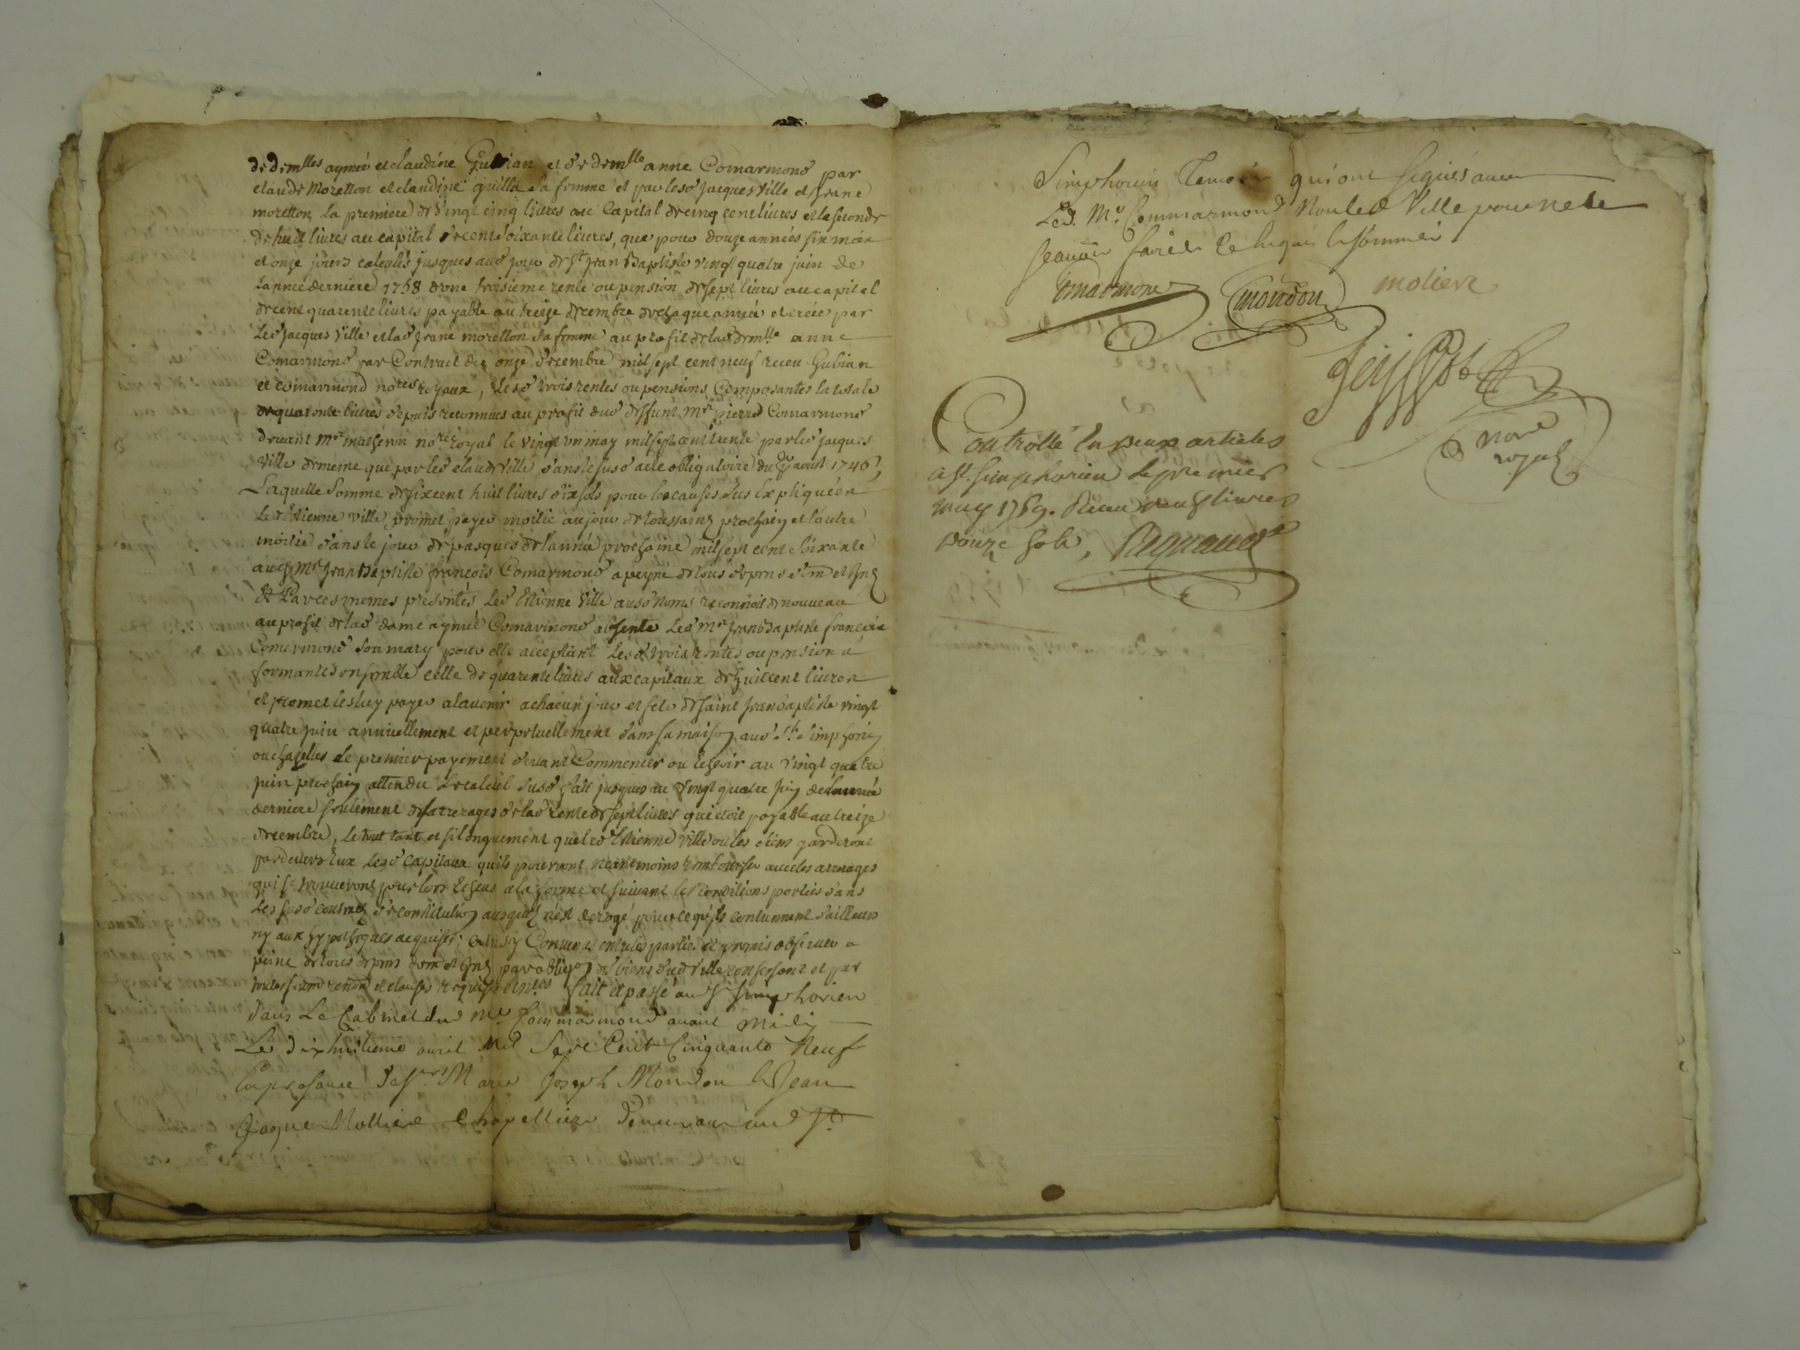 de dem^lles aymée et claudine Gubian et de dem^lle anne Comarmond par
claude Moretton et claudine quilla sa femme et par lesd Jacques Ville et Jeane
moretton, la premiere de vingt cinq livres au Capital de cinq cent livres et la seconde
de huit livres au capital de cent soixante livres, que pour douze années six mois
et onze jours calculés jusques aud jour de S^t Jean Baptiste vingt quatre juin de
Lannée derniere 1758 d'une troisieme rente ou pension de sept livres au capital
de cent quarente livres payable au treize decembre de chaque année et créée par
Led Jacques Ville et lad Jeane moretton sa femme au profit de lad dem^lle anne
Comarmond par Contract du onze decembre mil sept cent neuf receu Gubian
et comarmond no^res royaux, Lesd trois rentes ou pensions Composantes la totale
de quarente livres depuis reconnues au profit dud deffunt M^r pierre Comarmond
devant M^e matheron no^re royal le vingt un may mil sept cent trente par led Jacques
Ville de meme que par led claude Ville dans le susd acte obligatoire du aoust 1746,
Laquelle Somme de six cent huit livres dix sols pour les causes dus Expliquées
Led Etienne Ville promet payer moitié au jour de toussaint prochain et l'autre
moitié dans le jour de pasques de l'année prochaine mil sept cent soixante
aud M^r Jean Baptiste françois Comarmond a peyne de tous
Et Par ces memes presentes Led Etienne Ville aud Noms reconnoit de nouveau
au profit de lad dame aymée Comarmond absente Led M^r Jean Baptiste françois
Comarmond son mary pour elle acceptant Lesd trois rentes ou pensions
formantes ensemble celle de quarente livres aux capitaux de huit cent livres
et promet les luy payer a lavenir a chacun jour et fete de Saint Jean Baptiste vingt
quatre juin annuellement et perpetuellement dans sa maison aud S^t Simphorien
ou chazelles le premier payement devant Commencer ou echoir au vingt quatre
Juin prochain attendu Le calcul susd fait jusques au vingt quatre Juin de l'année
derniere seulement des arrerages de lad Rente de sept livres qui etoit payable au treize
decembre, Le tout tant et si longuement que led Etienne Ville ou les siens garderont
pardevers Eux Lesd Capitaux quils pourront neanmoins rembourser avec les arrerages
qui se trouveront pour lors echeus a la forme et suivant les conditions portées dans
Les susd contracts de constitution ausquels n'est derogé pour ce quils contiennent d'ailleurs
ny aux hypotheques acquises; ainsy Convenu entre les parties et promis observer a
peine de tous par obligon de biens dud Ville confessant et par
clauses requises fait et passé aud S^t Simphorien
Dans Le Cabinet dud M^e Commarmond avant Midi
Le dix huitieme avril Mil Sept Cent Cinquante Neuf
En presence de S^rs Marie Joseph Mondon et Jean
Jaque Molliere Chapellier Demeurant aud S^t
Simphorien Temoins qui ont signés avec
Led. M^e. Commarmond Non led Ville pour ne le
Scavoir faire De ce Enquis et sommé
Comarmond mondon moliere
no^re
royal
Controllé En deux articles
a St. Simphorien Le premier
may 1759. Receu neuf livres
douze sols,